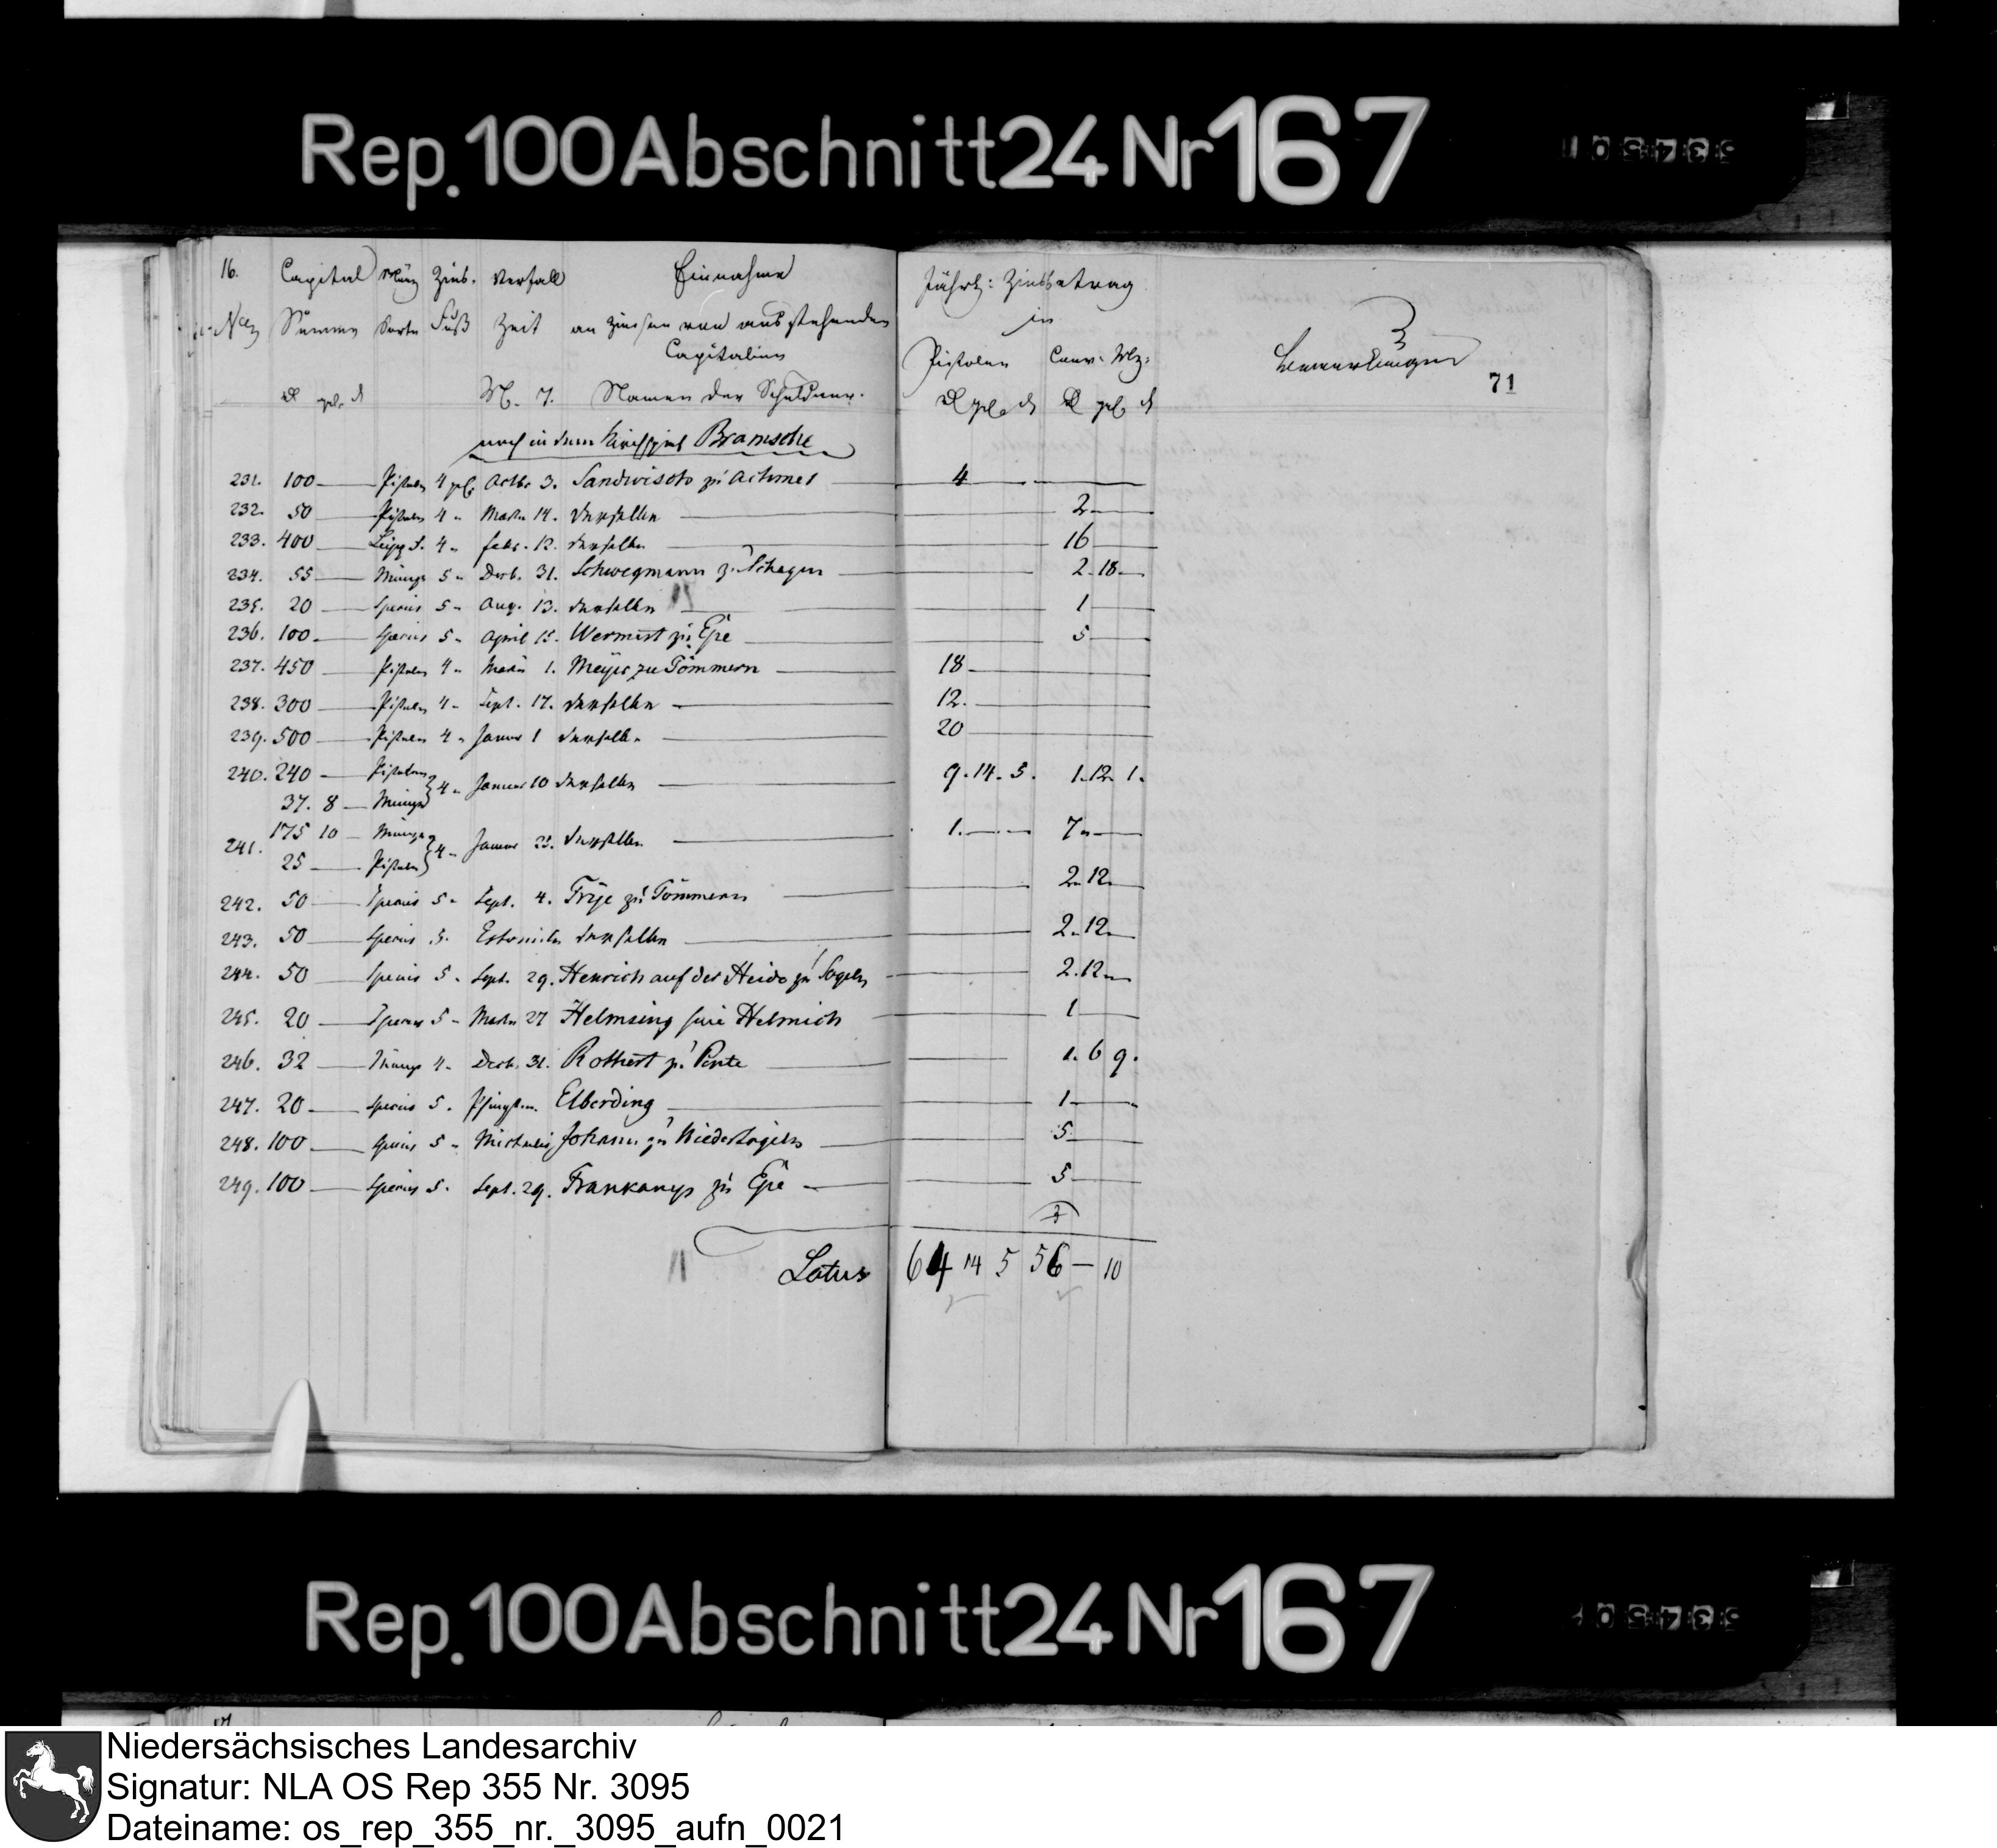 Rep. 100 Abschnitt 24 Nr 167
16. Capital Münz Zins- Verfall Einnahme Jährl: Zinsbetrag
Summe Sorte Fuß Zeit an Zinsen von ausstehenden in
Capitalien Pistolen Conv: Mz: Bemerkungen
71
M. T. Namen der Schuldner.
noch in dem Kirchspiel Bramsche
231. 100 — Pistolen 4 Octbr 3. Sandwisch zu Achmer — 4 —
232. 50 — Pistolen 4 " Martii 14. derselbe — 2 —
233. 400 — 4 " Febr. 12. derselbe — 16 —
234. 55 — Münze 5 " Decb. 31. Schwegmann z. Schagen — 2. 18 —
235. 20 — Species 5 " Aug. 13. derselbe — 1 —
236. 100 — Species 5 " April 15. Wermert zu Epe — 5 —
237. 450 — Pistolen 4 " Martii 1. Meÿer zu Sömmern — 18 —
238. 300 — Pistolen 4 " Sept. 17. derselbe — 12. —
239. 500 — Pistolen 4 " Januar 1 derselbe — 20 —
240. 240 — Pistolen 4 " Januar 10 derselbe — 9. 14. 5. 1. 12. 1.
37. 8 — Münze
241. 175 10 — Münze 4 " Januar 23. derselbe — 1. — 7 " —
25 — Pistolen
242. 50 — Species 5 " Sept. 4. Frÿe zu Sömmern — 2. 12. —
243. 50 — Species 5. Estomihi derselbe — 2. 12. —
244. 50 — Species 5 " Sept. 29. Henrich auf der Heide zu Sögeln — 2. 12 —
245. 20 — Species 5 " Martii 27 Helmsing sive Helmich — 1 —
246. 32 — Münze 4 " Decb. 31. Rothert zu Pente — 1. 6 9.
247. 20 — Species 5. Pfingsten. Elberding — 1 —
248. 100 — Species 5 " Michaelis Johann zu Niedersögeln — 5. —
249. 100 — Species 5. Sept. 29. Frankamp zu Epe — 5 —
Latus 64 14 5 56 — 10
Rep. 100 Abschnitt 24 Nr 167
Niedersächsisches Landesarchiv
Signatur: NLA OS Rep 355 Nr. 3095
Dateiname: os_rep_355_nr._3095_aufn_0021